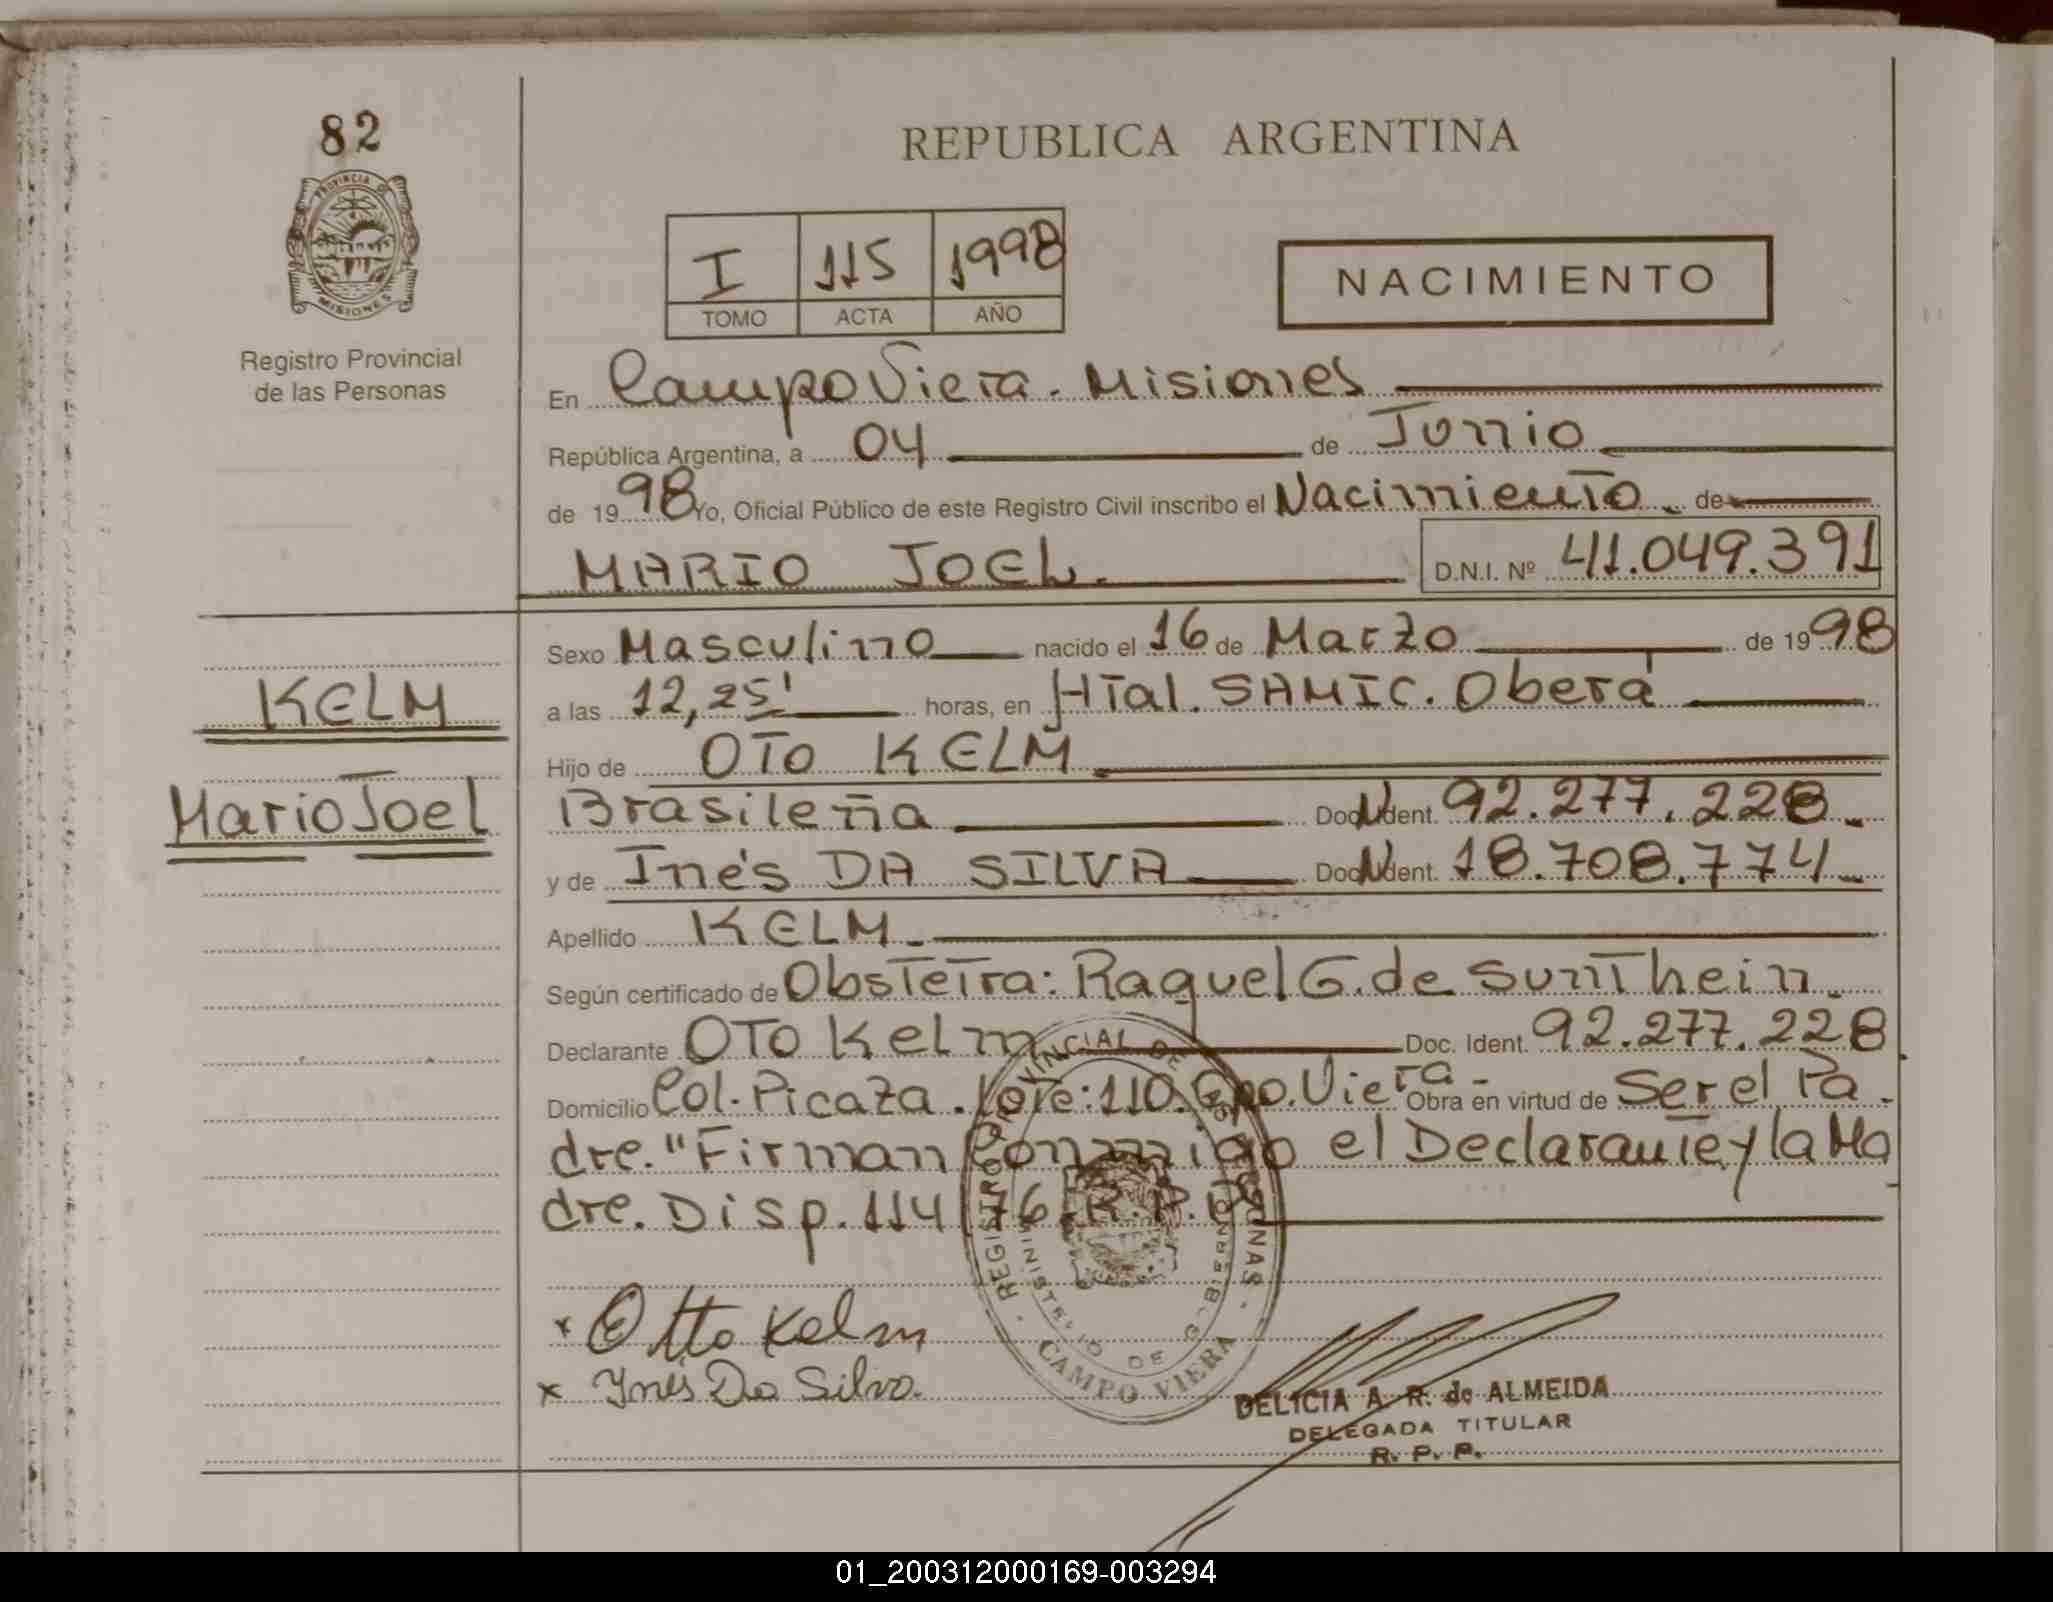 82
PROVINCIA DE
MISIONES
Registro Provincial
de las Personas
REPUBLICA ARGENTINA
I 115 1998
TOMO ACTA AÑO
NACIMIENTO
En Campo Viera. Misiones
República Argentina, a 04 de Junio
de 1998 Yo, Oficial Público de este Registro Civil inscribo el Nacimiento de
MARIO JOEL. D.N.I. Nº 41.049.391
Sexo Masculino nacido el 16 de Marzo de 1998
KELM
a las 12,25' horas, en Htal. SAMIC. Oberá
Hijo de OTO KELM
Mario Joel
Brasileña Doc. Ident. 92.277.228
y de Inés DA SILVA Doc. Ident. 18.708.774
Apellido KELM
Según certificado de Obstetra: Raquel G. de Sunthein.
Declarante OTO Kelm Doc. Ident. 92.277.228
Domicilio Col. Picaza. Lote: 110. Cpo. Viera - Obra en virtud de Ser el Pa
dre. "Firman Conmigo el Declarante y la Ma
dre. Disp. 114 76. R.P.P.
x Otto Kelm
x Ynés Da Silva.
REGISTRO PROVINCIAL DE LAS PERSONAS
MINISTERIO DE GOBIERNO
CAMPO VIERA
DELICIA A. R. de ALMEIDA
DELEGADA TITULAR
R. P. P.
01_200312000169-003294